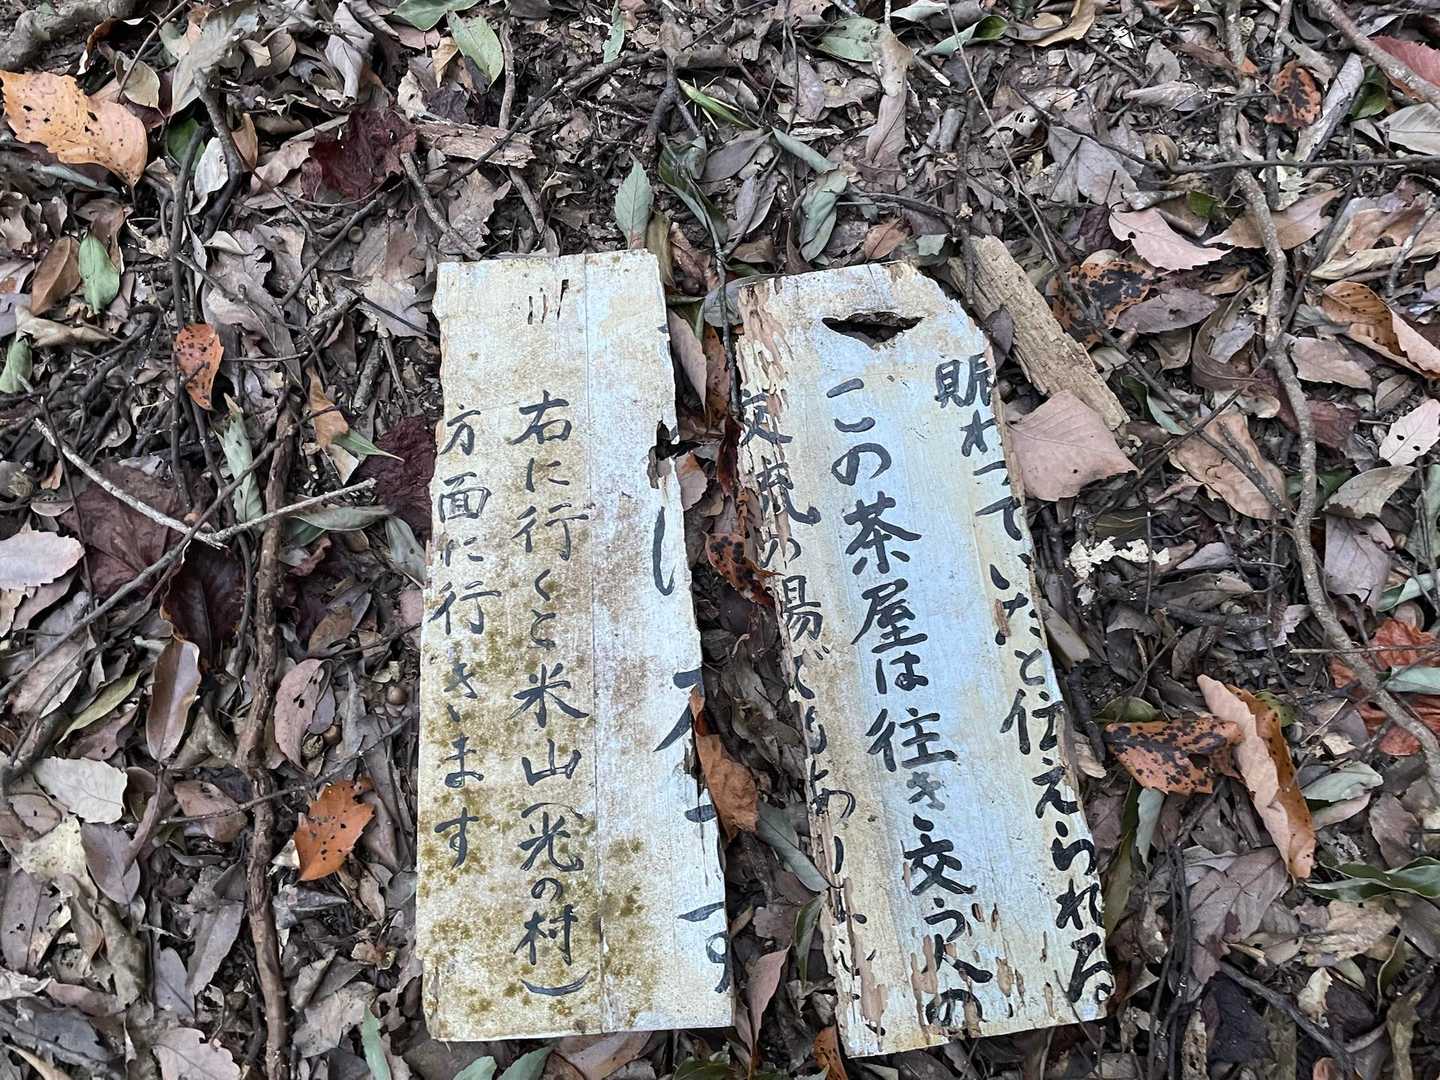 賑わっていたと伝えられる。
この茶屋は往き交う人の
交流の場でもあり
右に行くと米山(光の村)
方面に行きます